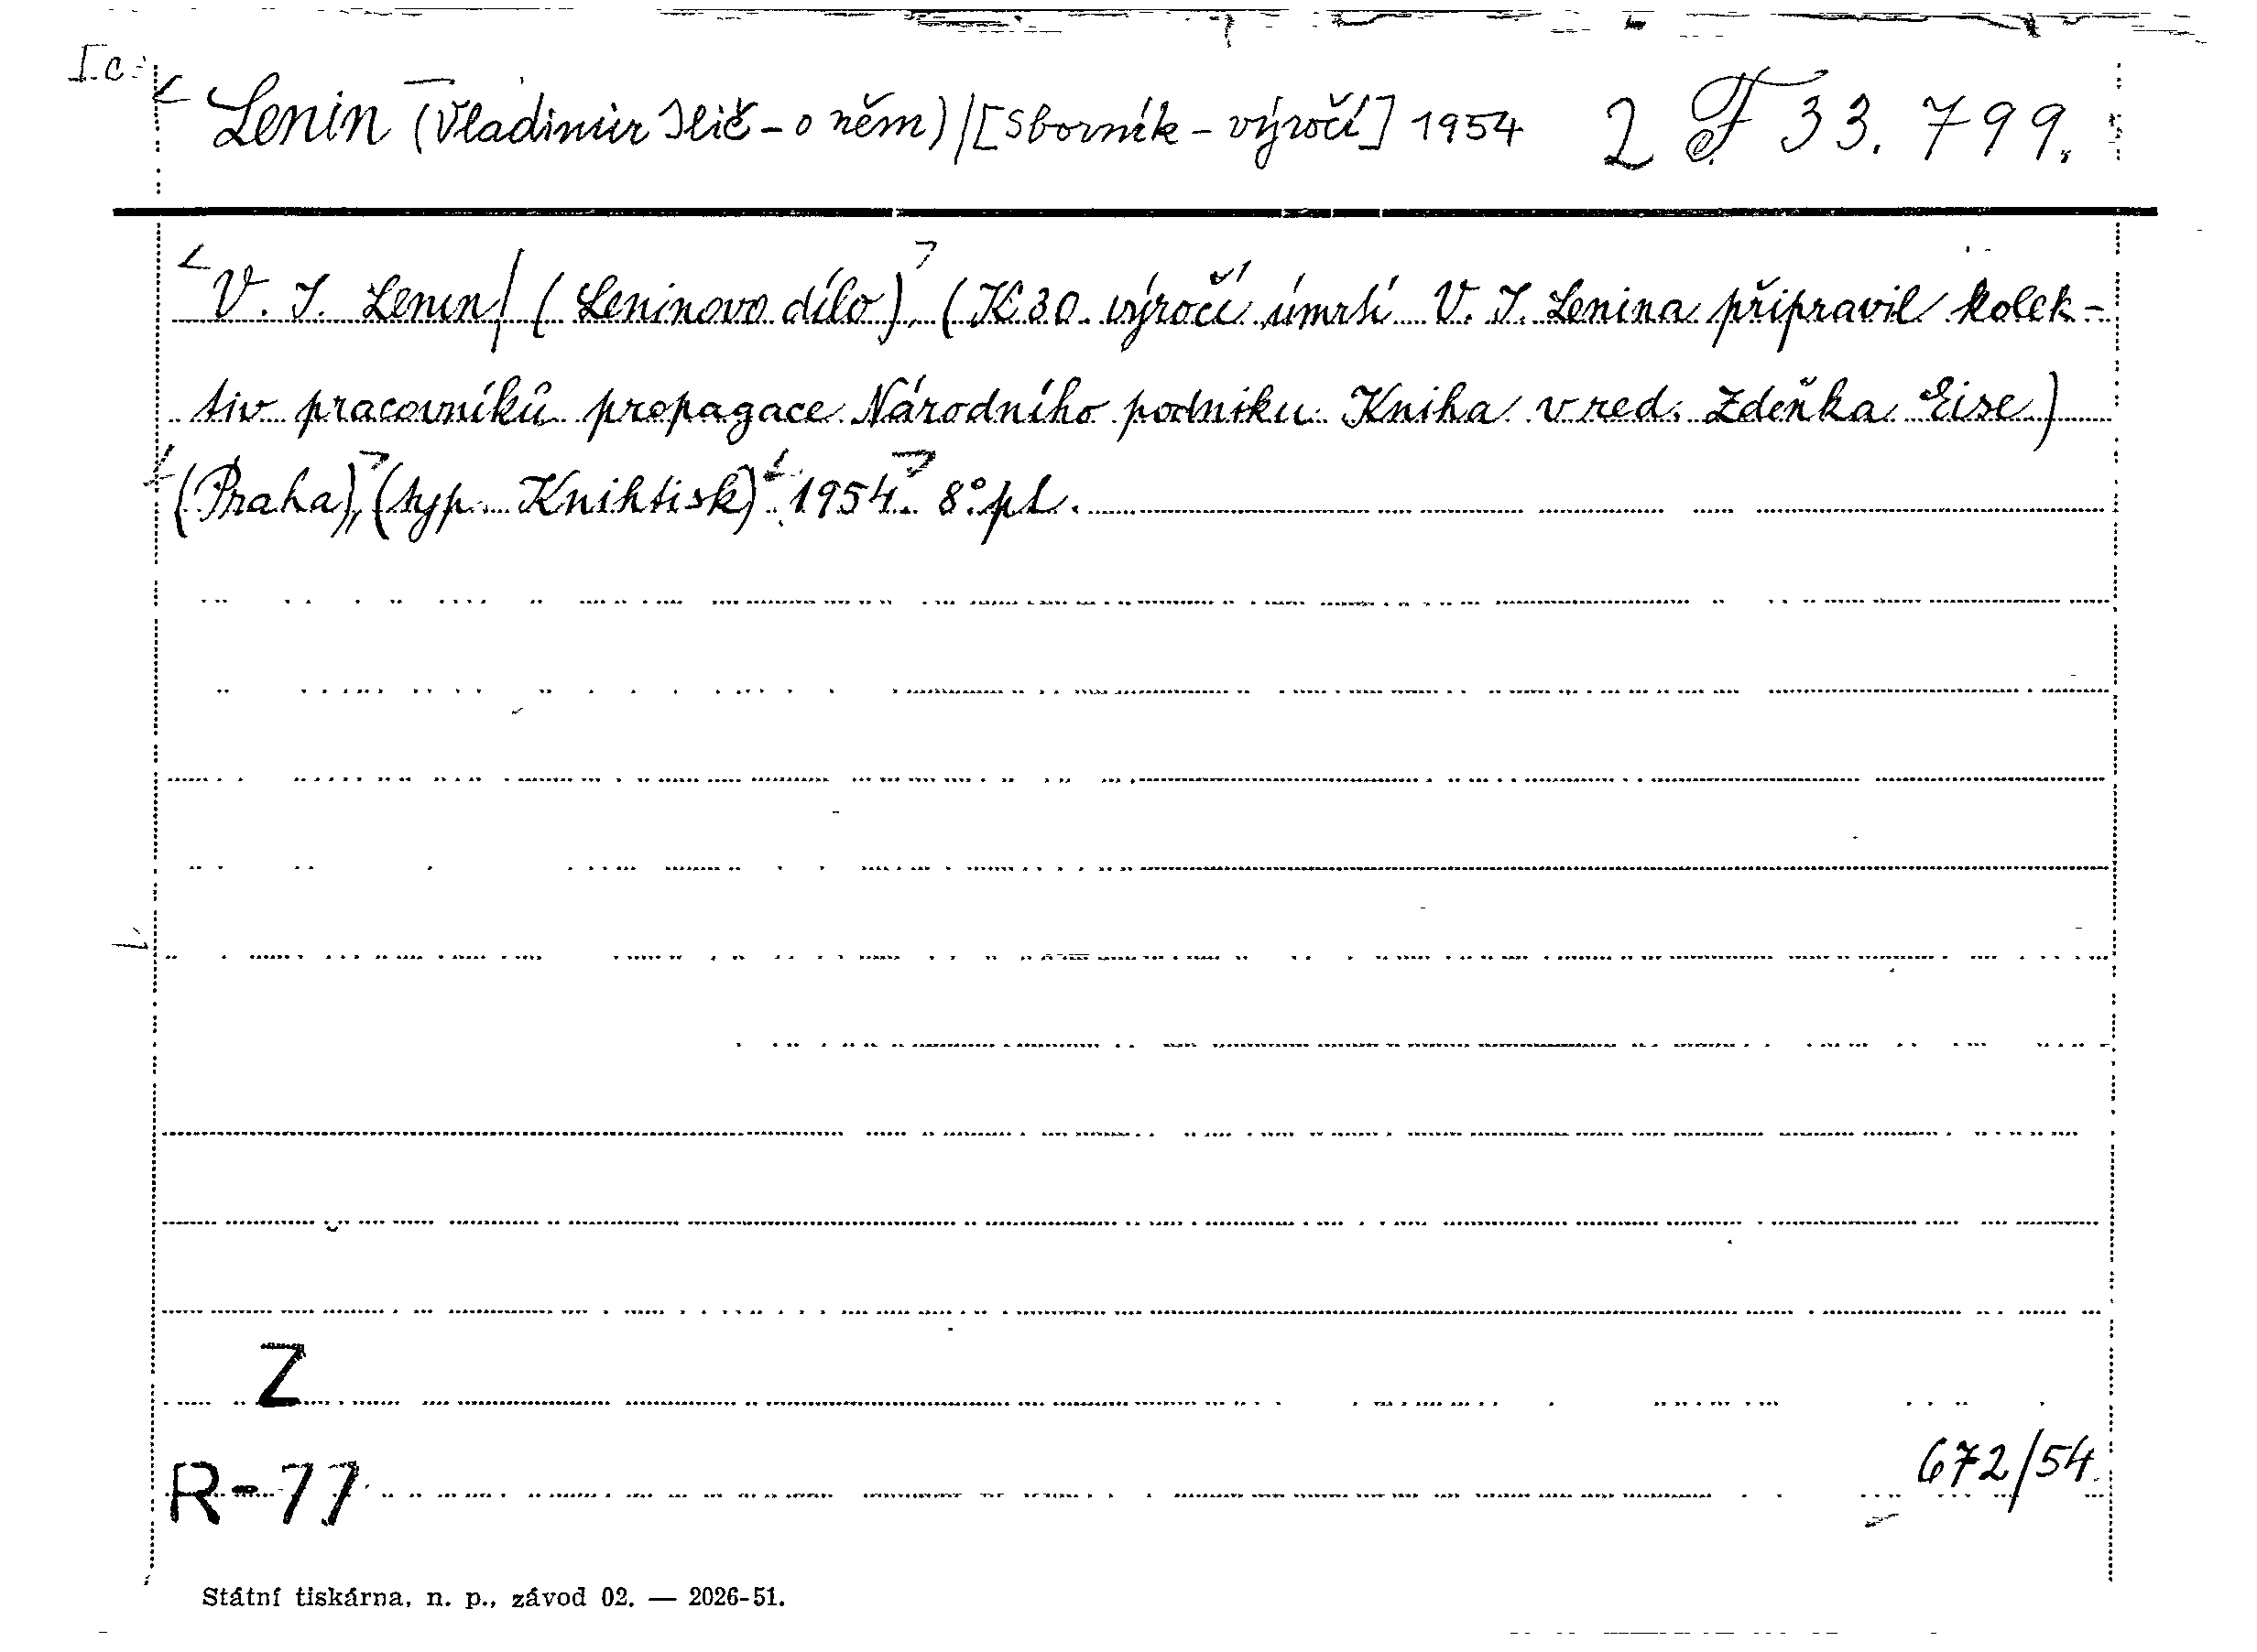 I.c.
Lenin (Vladimir Ilič - o něm) / [Sborník - výročí] 1954 2 F 33.799.
V. I. Lenin / (Leninovo dílo), (K 30. výročí úmrtí V. I. Lenina připravil kolek-
tiv pracovníků propagace Národního podniku Kniha v red. Zdeňka Eise)
(Praha), (typ. Knihtisk) 1954. 8° pl.
Z
R-77
672/54
Státní tiskárna, n. p., závod 02. — 2026-51.